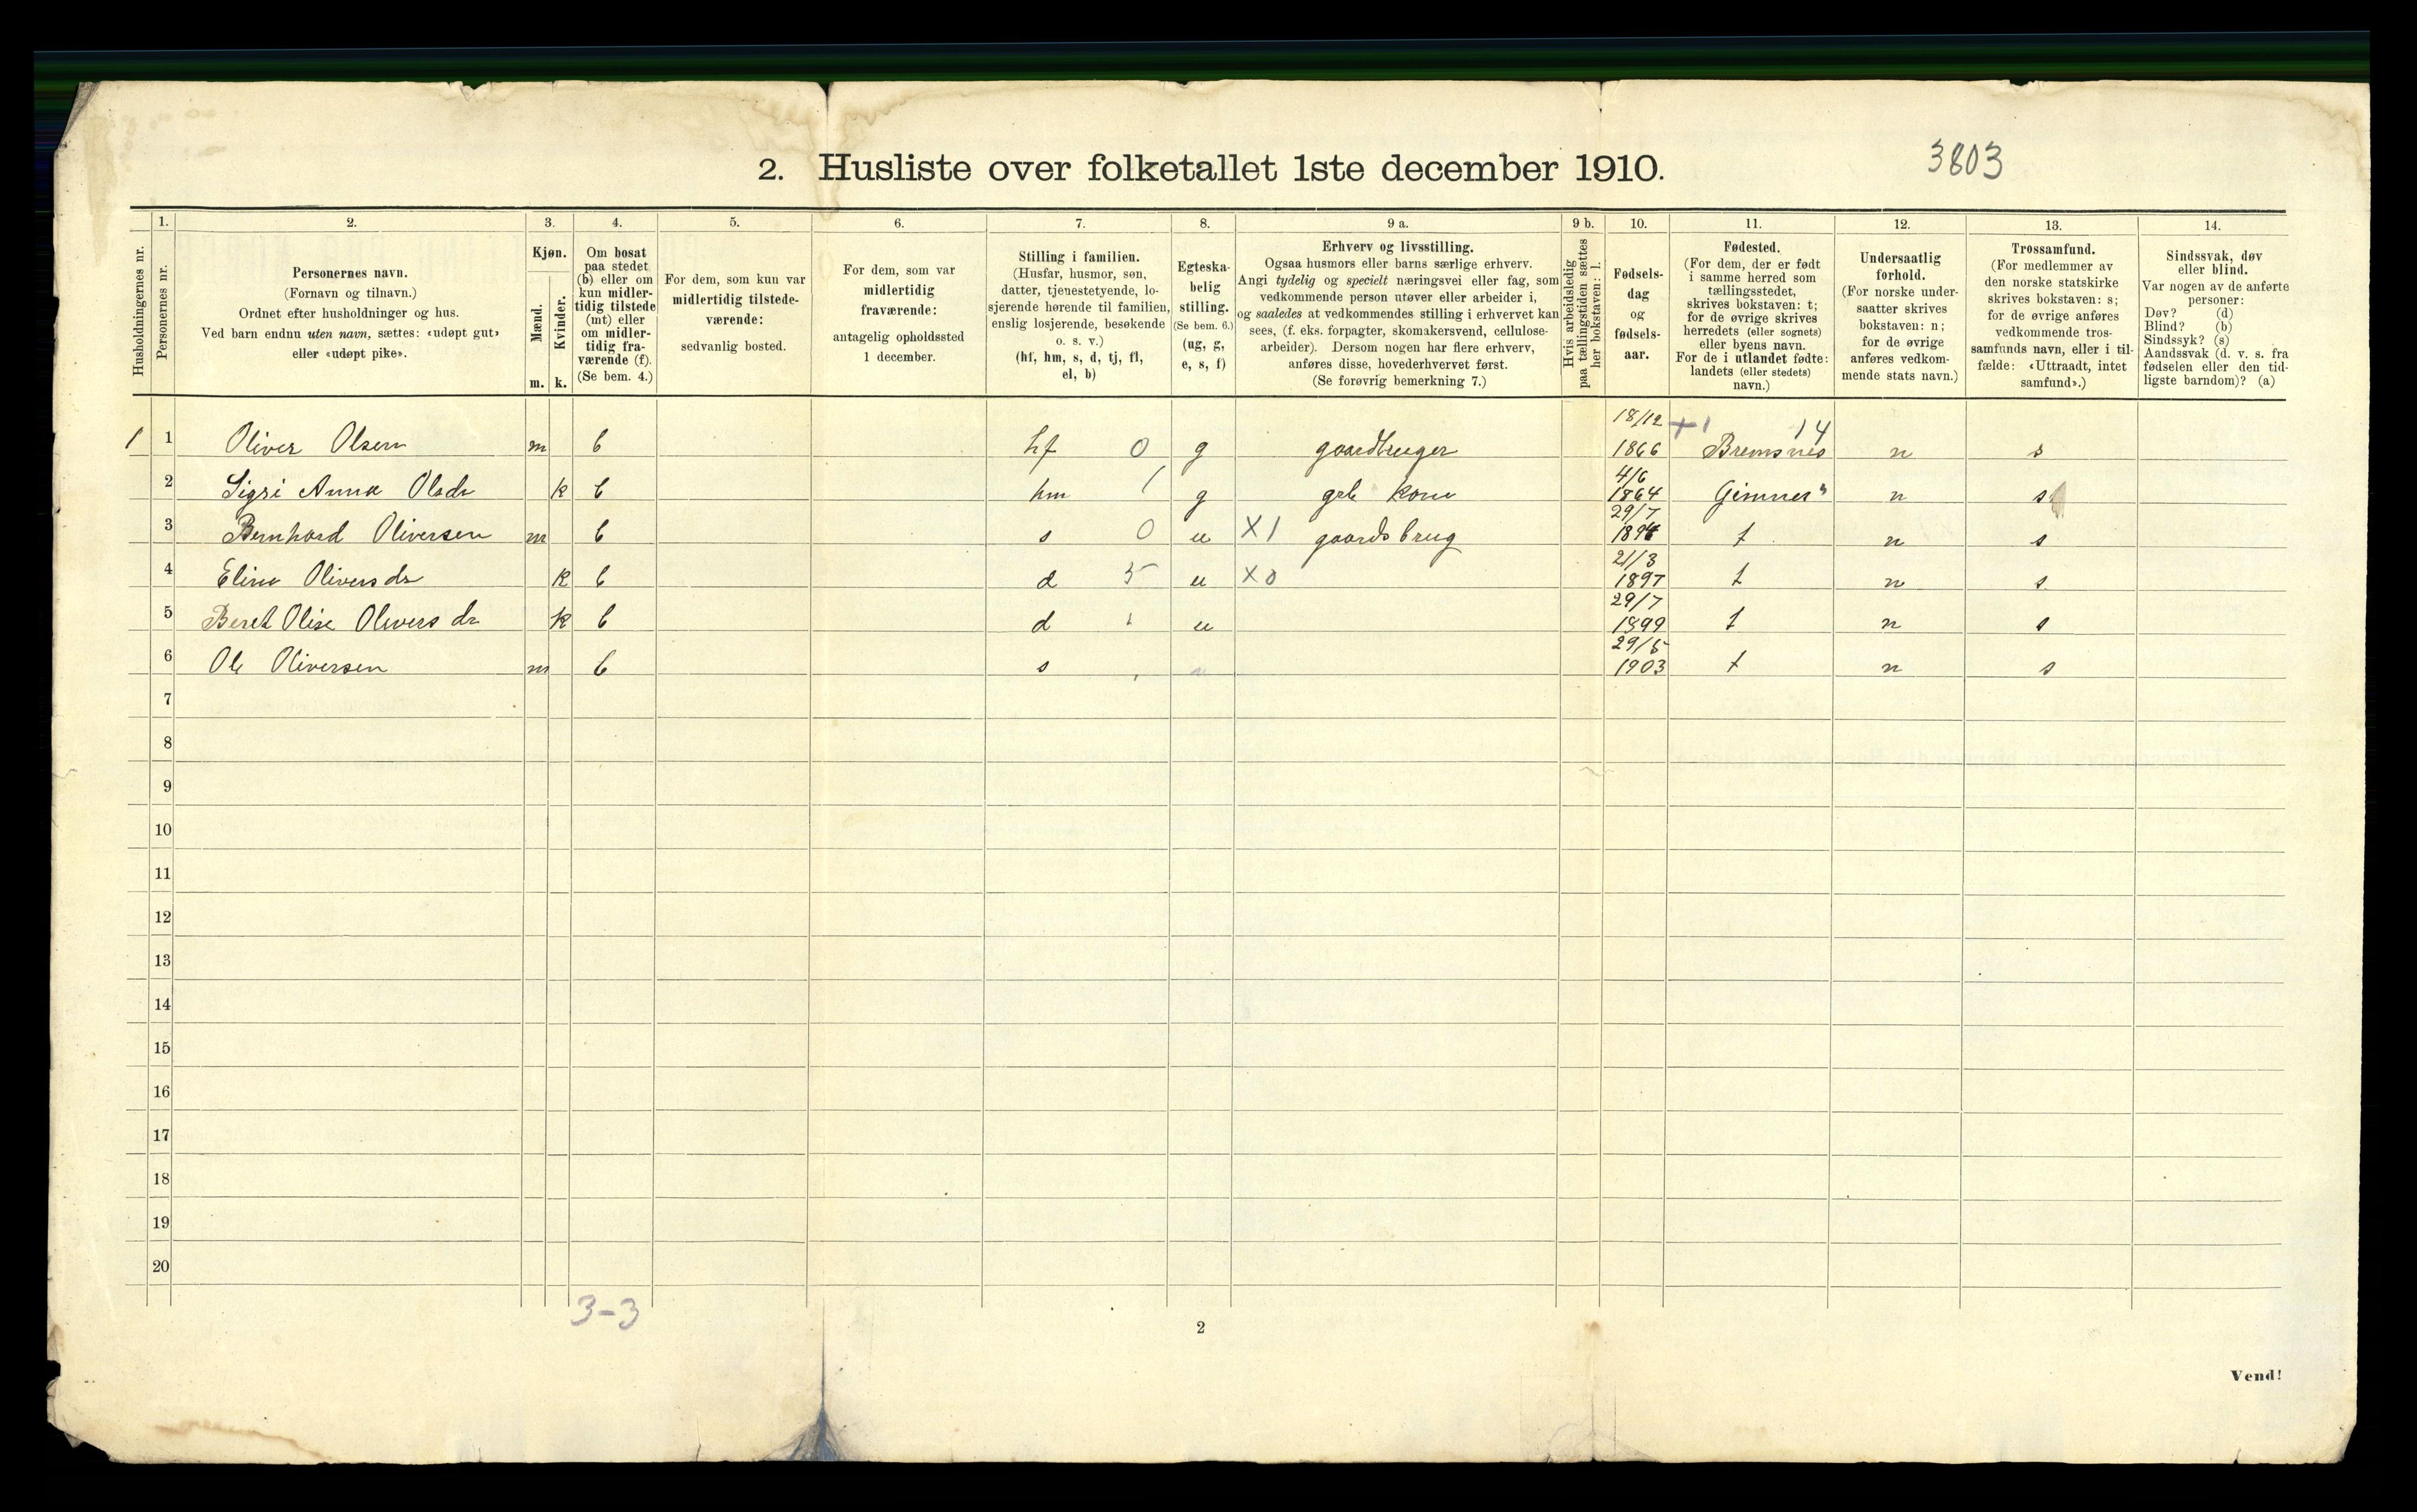 3803
2. Husliste over folketallet 1ste december 1910.
Husholdningernes nr.
1.
Personernes nr.
2.
Personernes navn.
(Fornavn og tilnavn.)
Ordnet efter husholdninger og hus.
Ved barn endnu uten navn, sættes: «udøpt gut»
eller «udøpt pike».
3.
Kjøn.
Mænd.
Kvinder.
m. k.
4.
Om bosat
paa stedet
(b) eller om
kun midler-
tidig tilstede
(mt) eller
om midler-
tidig fra-
værende (f).
(Se bem. 4.)
5.
For dem, som kun var
midlertidig tilstede-
værende:
sedvanlig bosted.
6.
For dem, som var
midlertidig
fraværende:
antagelig opholdssted
1 december.
7.
Stilling i familien.
(Husfar, husmor, søn,
datter, tjenestetyende, lo-
sjerende hørende til familien,
enslig losjerende, besøkende
o. s. v.)
(hf, hm, s, d, tj, fl,
el, b)
8.
Egteska-
belig
stilling.
(Se bem. 6.)
(ug, g,
e, s, f)
9 a.
Erhverv og livsstilling.
Ogsaa husmors eller barns særlige erhverv.
Angi tydelig og specielt næringsvei eller fag, som
vedkommende person utøver eller arbeider i,
og saaledes at vedkommendes stilling i erhvervet kan
sees, (f. eks. forpagter, skomakersvend, cellulose-
arbeider). Dersom nogen har flere erhverv,
anføres disse, hovederhvervet først.
(Se forøvrig bemerkning 7.)
9 b.
Hvis arbeidsledig
paa tællingstiden sættes
her bokstaven: l.
10.
Fødsels-
dag
og
fødsels-
aar.
11.
Fødested.
(For dem, der er født
i samme herred som
tællingsstedet,
skrives bokstaven: t;
for de øvrige skrives
herredets (eller sognets)
eller byens navn.
For de i utlandet fødte:
landets (eller stedets)
navn.)
12.
Undersaatlig
forhold.
(For norske under-
saatter skrives
bokstaven: n;
for de øvrige
anføres vedkom-
mende stats navn.)
13.
Trossamfund.
(For medlemmer av
den norske statskirke
skrives bokstaven: s;
for de øvrige anføres
vedkommende tros-
samfunds navn, eller i til-
fælde: «Uttraadt, intet
samfund».)
14.
Sindssvak, døv
eller blind.
Var nogen av de anførte
personer:
Døv? (d)
Blind? (b)
Sindssyk? (s)
Aandssvak (d. v. s. fra
fødselen eller den tid-
ligste barndom)? (a)
1 1 Oliver Olsen m b hf 0 g gaardbruger 18/12 1866 +1 Bremsnes 14 n s
2 Sigri Anna Olsdr k b hm 1 g grb kone 4/6 1864 Gimnes " n s
3 Bernhard Oliversen m b s 0 u X 1 gaardsbrug 29/7 1894 t n s
4 Eline Oliversdr k b d 5 u X 0 21/3 1897 t n s
5 Beret Olise Olivers dr k b d u 29/7 1899 t n s
6 Ole Oliversen m b s 29/5 1903 t n s
7
8
9
10
11
12
13
14
15
16
17
18
19
20
3-3
2
Vend!